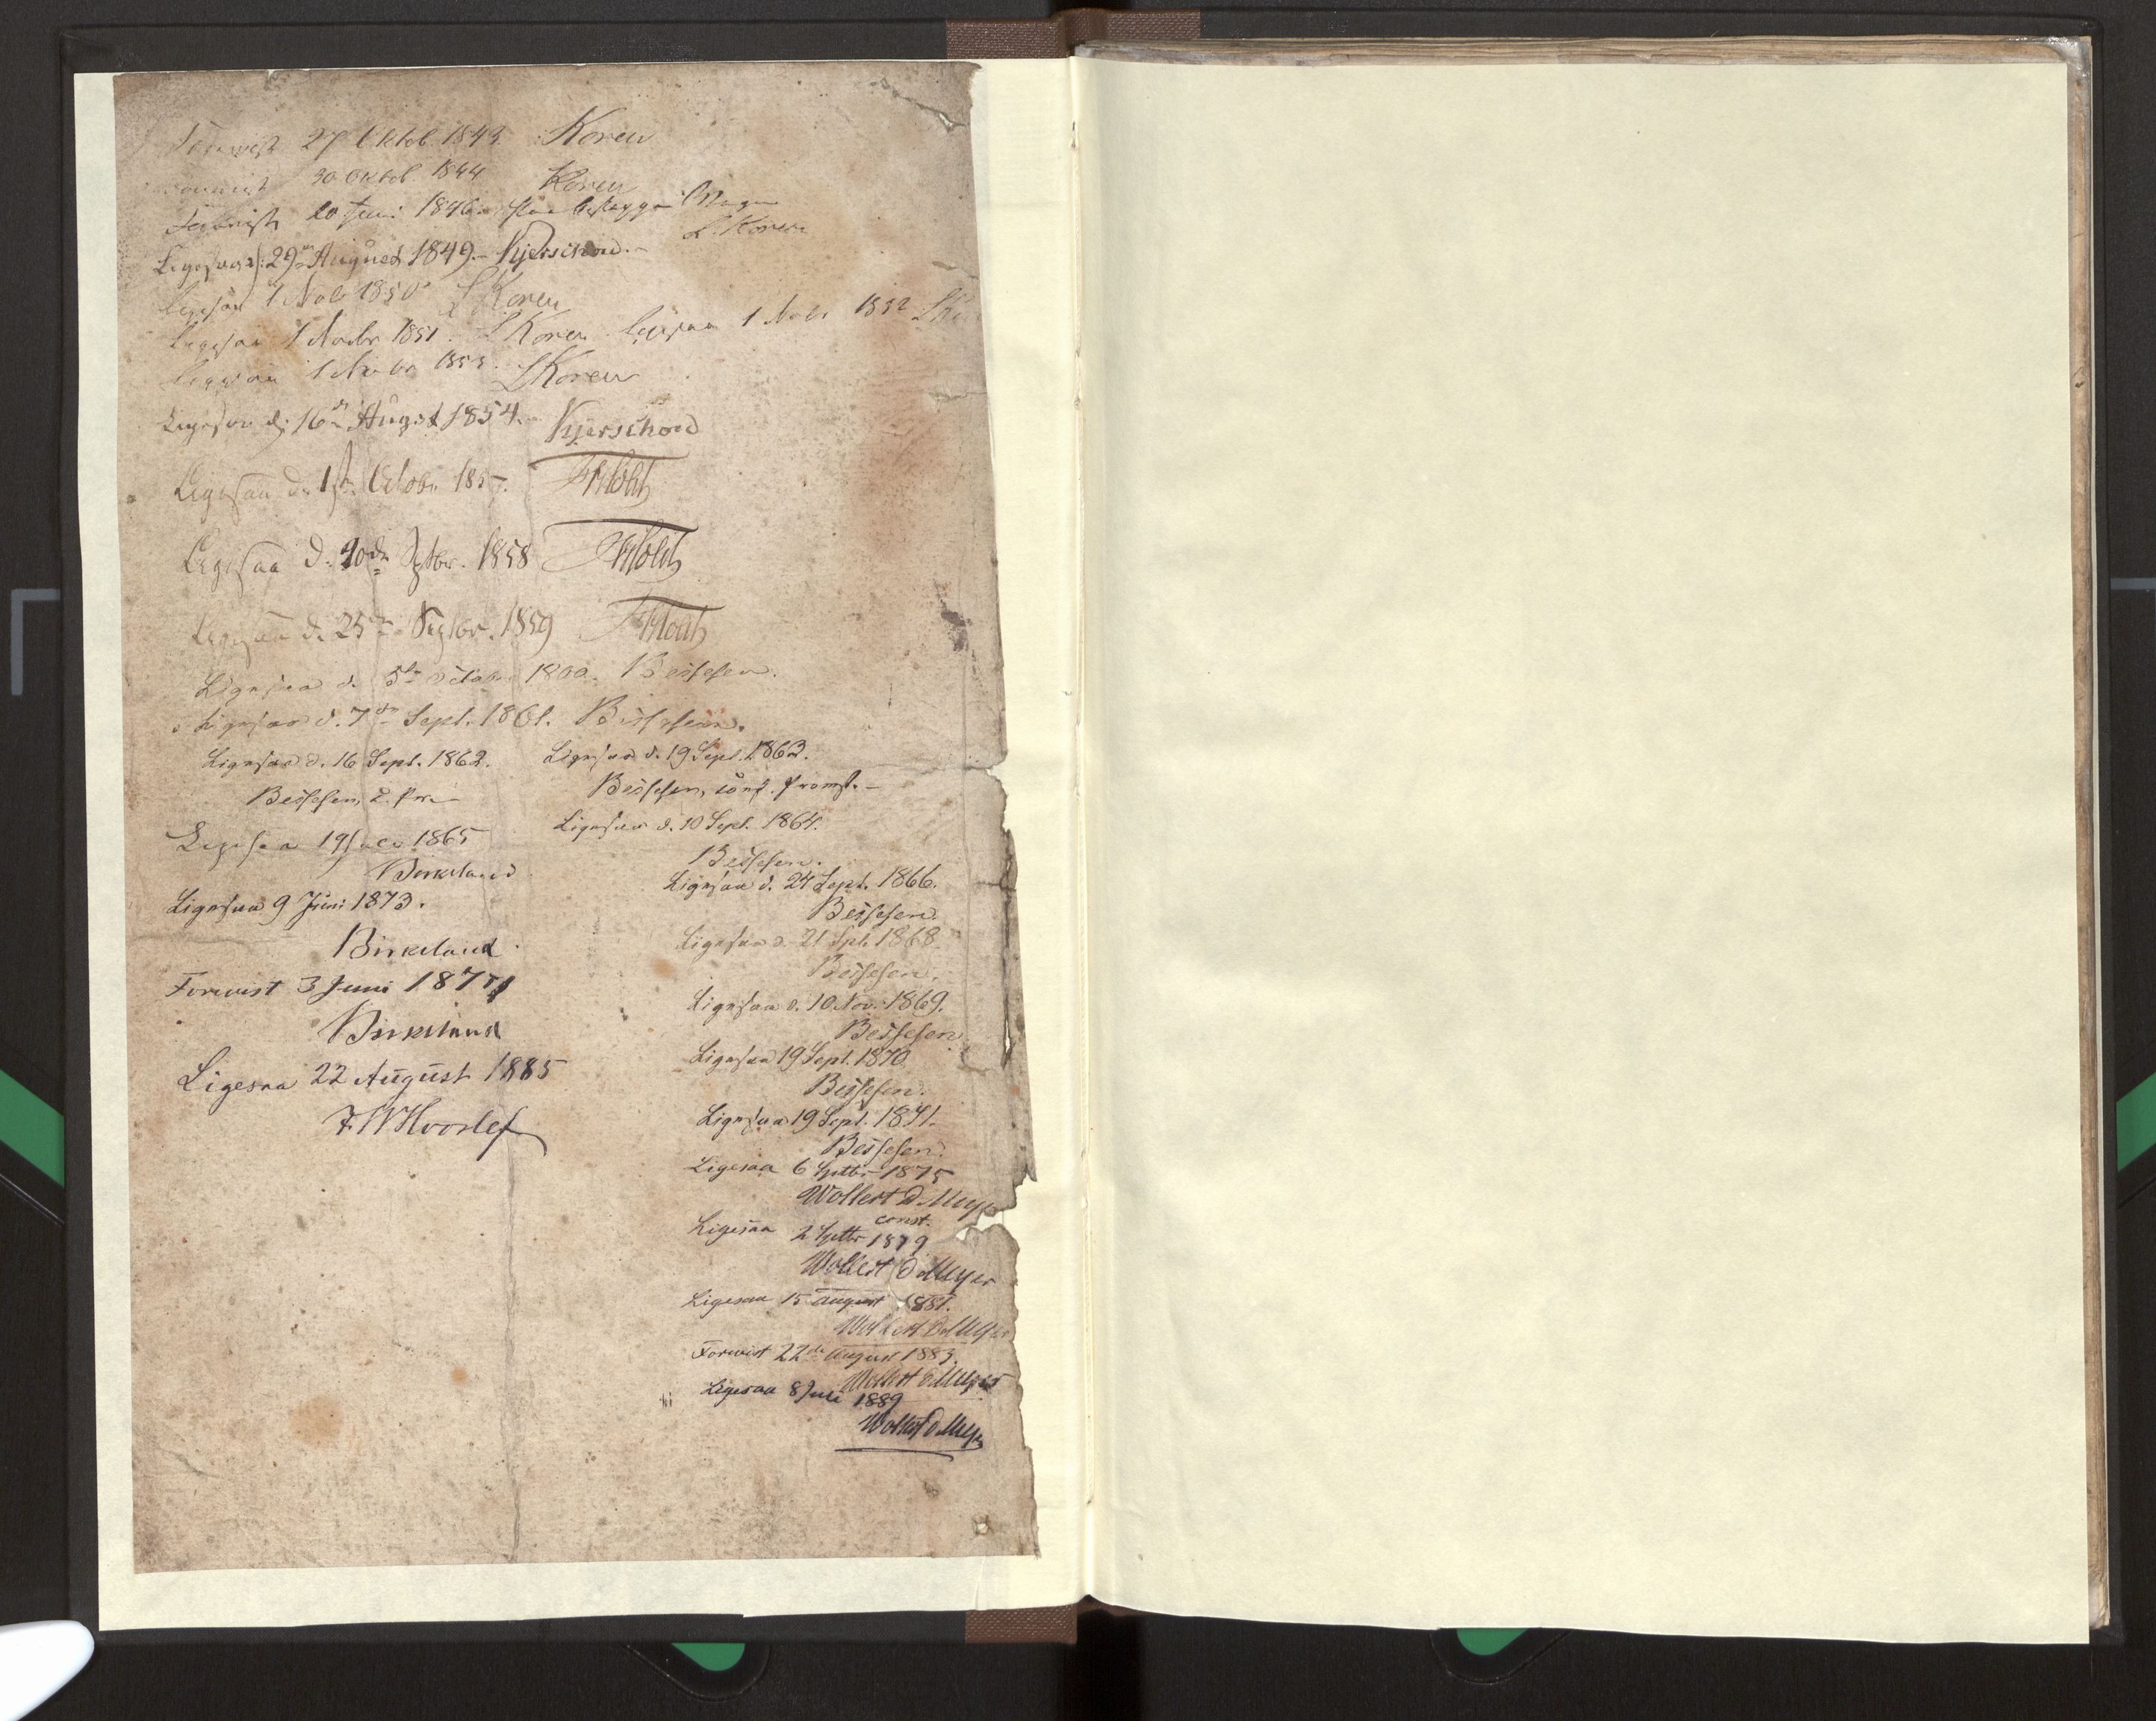 Forevist 27 Oktob. 1843. Koren
Forevist 30 Oktob. 1844 Koren
Forevist 20 Juni 1846.
L. Koren
Ligesaa d: 29de August 1849.- Kjerschow.-
Ligesaa 1 Nobr 1850 L Koren
Ligesaa 1 Novbr 1851. L Koren. Ligesaa 1 Nobr 1852
Ligesaa 1 Novbr 1853. L Koren
Ligesaa d: 16de August 1854.- Kjerschow
Ligesaa d. 1ste Octobr 1857.
Ligesaa d. 20de Septbr. 1858
Ligesaa d. 25de Septbr. 1859
Ligesaa d. 5te October 1860. Bessesen.
Ligesaa d. 7de Sept. 1861. Bessesen.
Ligesaa d. 16 Sept. 1862.
Bessesen,
Ligesaa d. 19 Sept. 1863.
Bessesen, const. Provst.-
Ligesaa d. 10 Sept. 1864.
Bessesen.
Ligesaa 19 Juli 1865
Birkeland
Ligesaa d. 24 Sept. 1866.
Bessesen.
Ligesaa d. 21 Spt. 1868.
Bessesen.
Ligesaa d. 10 Nov. 1869.
Bessesen
Ligesaa 19 Sept. 1870.
Bessesen.
Ligesaa 19 Sept. 1871.
Bessesen.
Ligesaa 9 Juni 1873.
Birkeland
Forevist 3 Juni 1877
Birkeland
Ligesaa 22 August 1885
F W Hvoslef
Ligesaa 6 Septbr 1875
Wollert D. Meyer
const.
Ligesaa 2 Septbr 1879
Wollert D Meyer
Ligesaa 15 August 1881.
Wollert D Meyer
Forevist 22de August 1883.
Wollert D Meyer
Ligesaa 8 Juli 1889
Wollert D Meyer